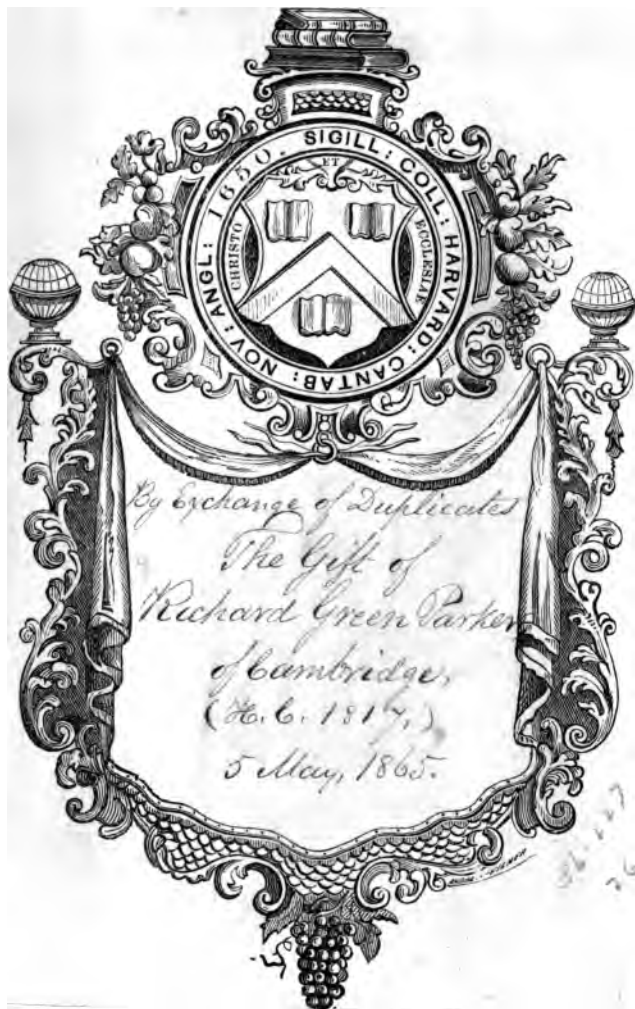 SIGILL: COLL: HARVARD: CANTAB: NOV: ANGL: 1650.
CHRISTO
ET
ECCLESIAE
By Exchange of Duplicates
The Gift of
Richard Green Parker
of Cambridge,
(H. C. 1817,)
5 May, 1865.